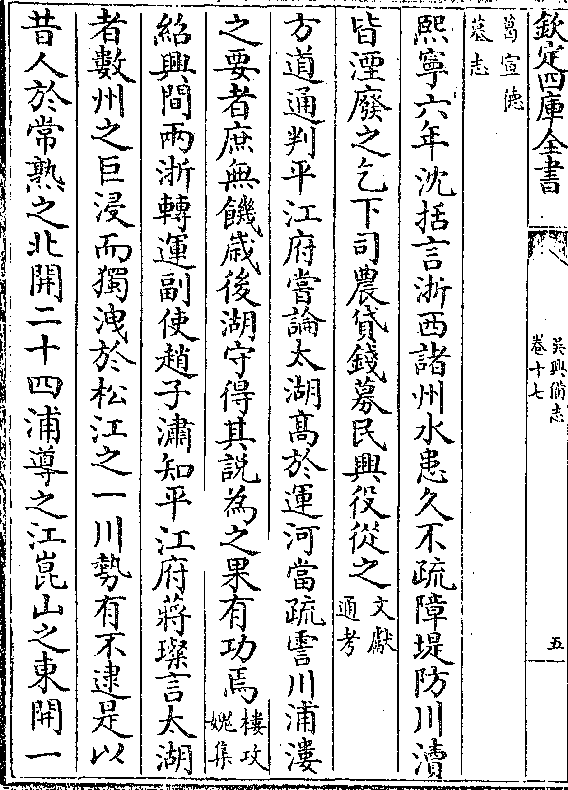 欽定四庫全書
吳興備志
卷十七
五
葛宣德
墓志
熙寧六年沈括言浙西諸州水患久不疏障堤防川瀆
皆湮廢之乞下司農貸錢募民興役從之文獻通考
方道通判平江府嘗論太湖髙於運河當疏霅川浦漊
之要者庶無饑歲後湖守得其說為之果有功焉樓攻媿集
紹興間兩浙轉運副使趙子潚知平江府蔣璨言太湖
者數州之巨浸而獨洩於松江之一川勢有不逮是以
昔人於常熟之北開二十四浦導之江崑山之東開一